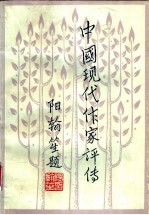 中國现代作家评传
阳翰笙题